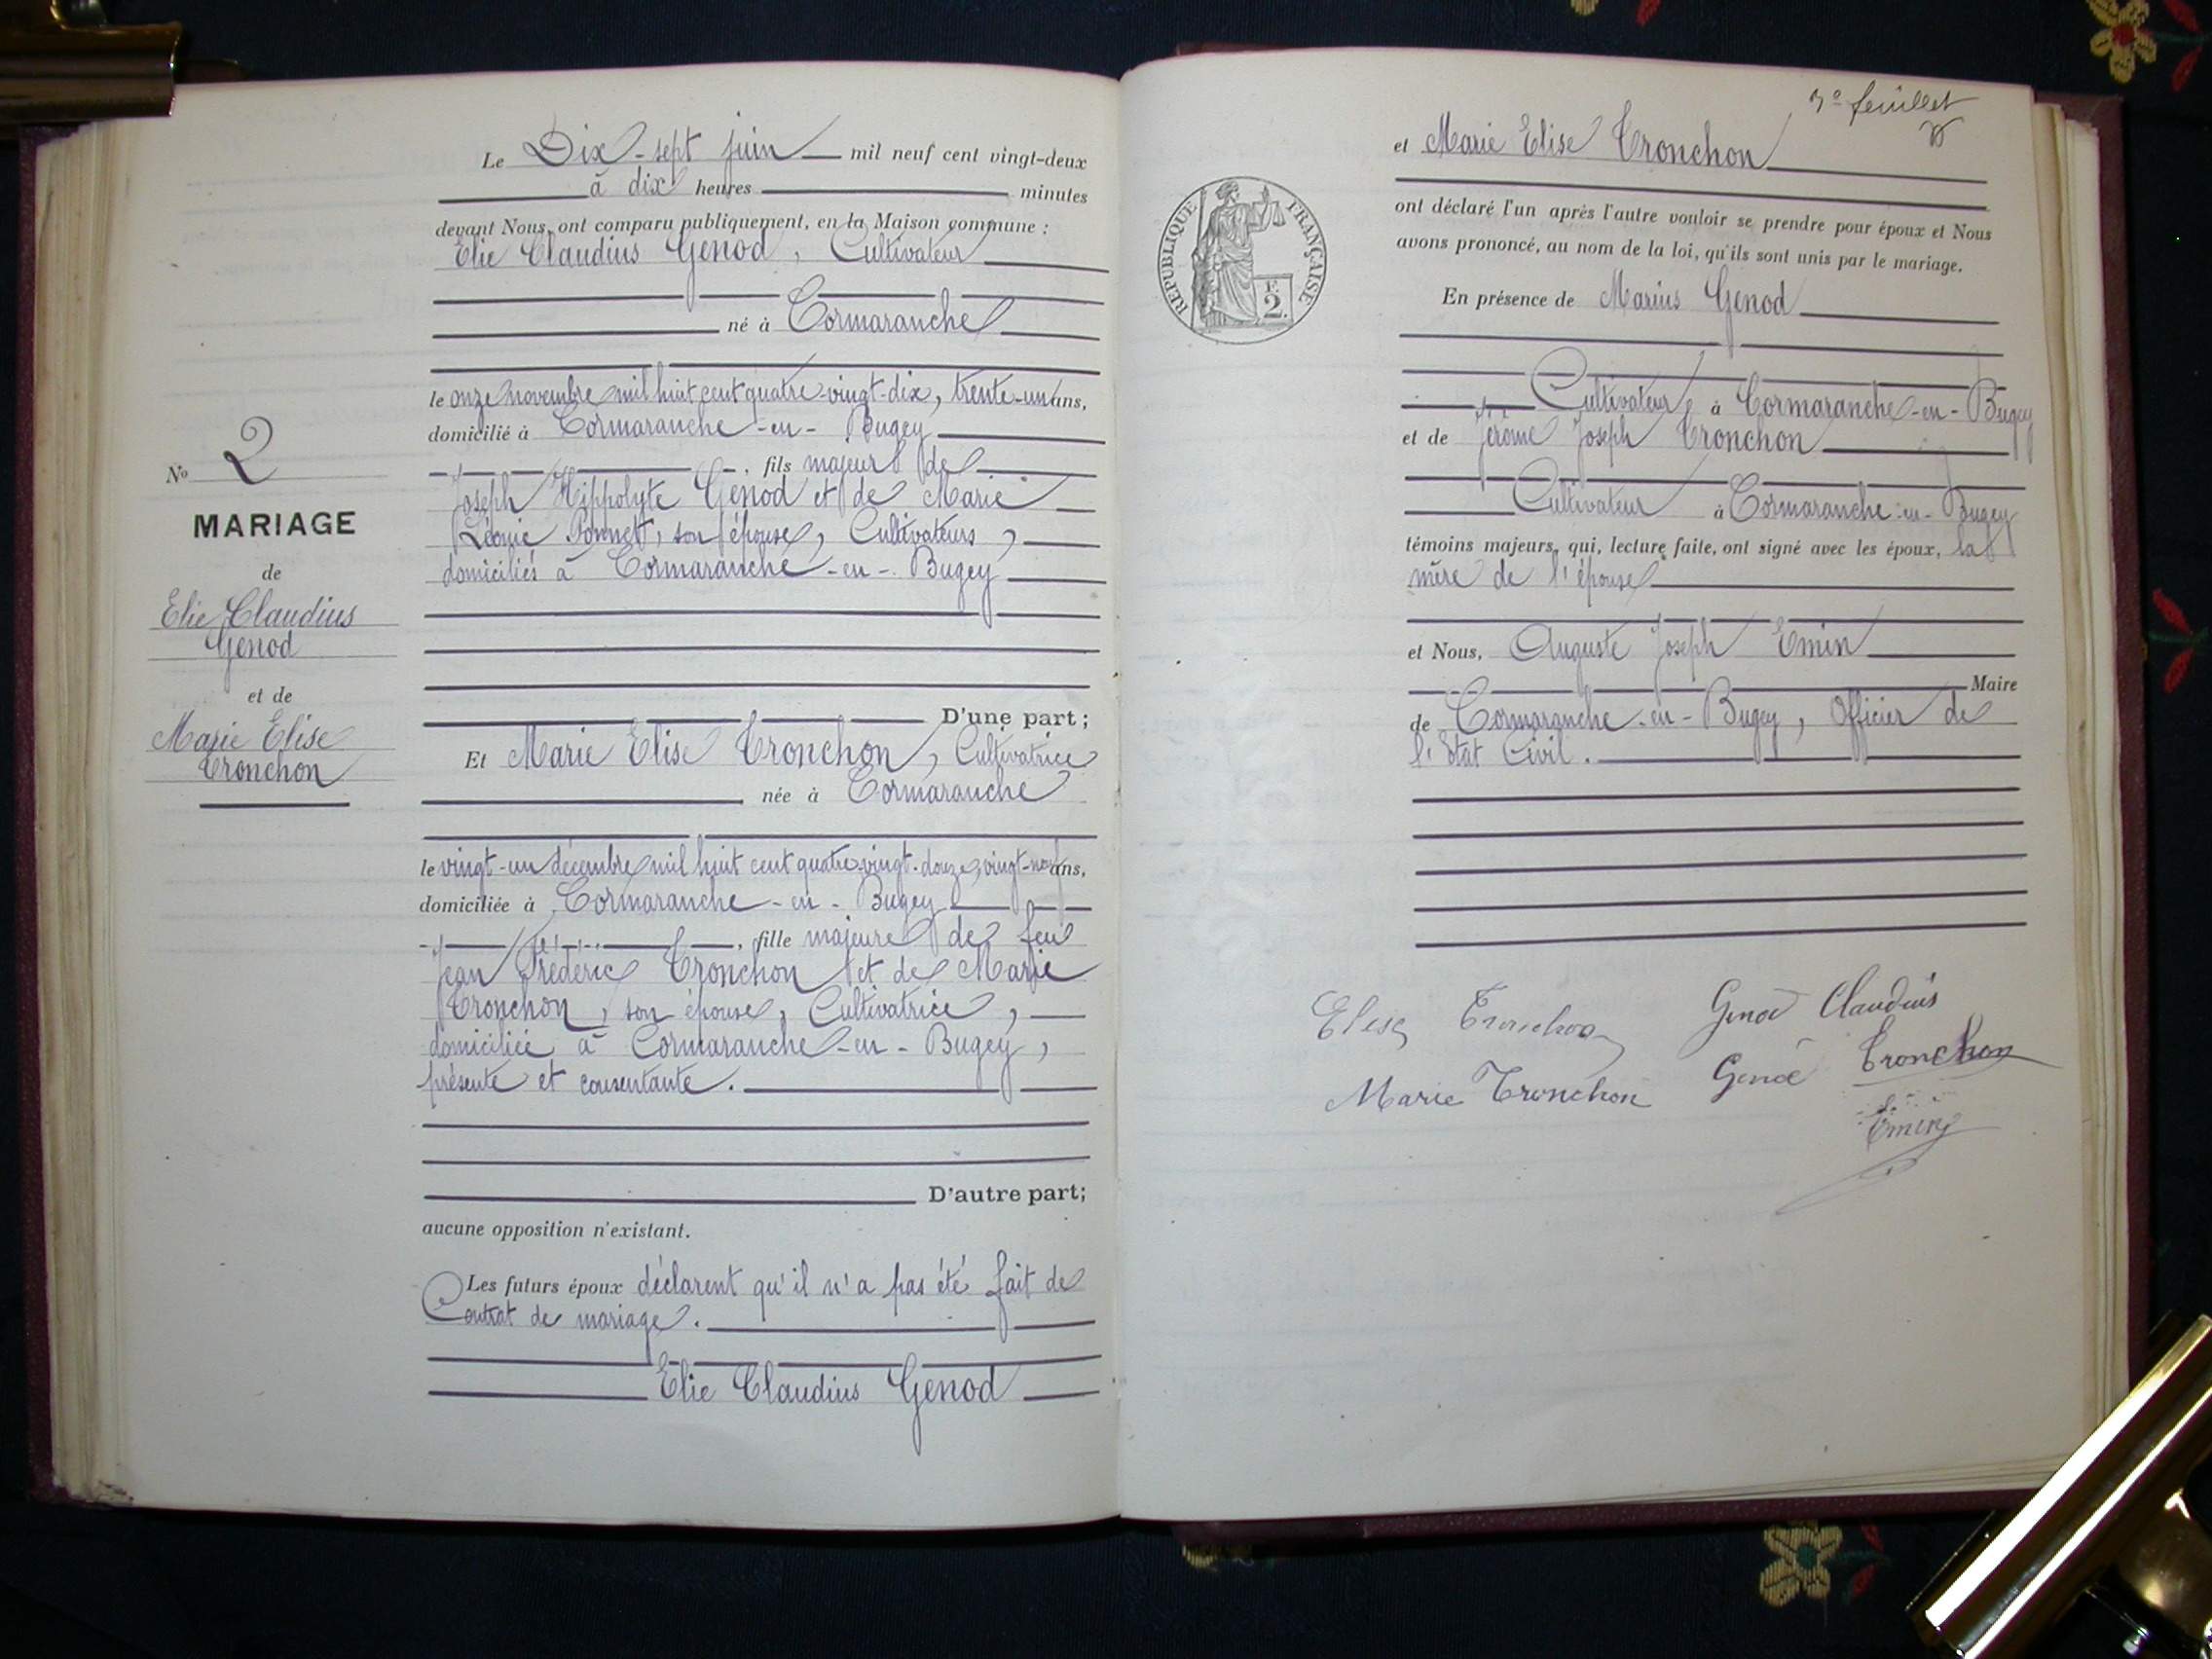 Le Dix-sept juin mil neuf cent vingt-deux
à dix heures minutes
devant Nous, ont comparu publiquement, en la Maison commune :
Elie Claudius Genod, Cultivateur
né à Cormaranche
le onze novembre mil huit cent quatre-vingt-dix, trente-un ans,
domicilié à Cormaranche-en-Bugey
, fils majeur de
Joseph Hippolyte Genod et de Marie
Léonie Ponnet, son épouse, Cultivateurs,
domiciliés à Cormaranche-en-Bugey
D'une part;
Et Marie Elise Tronchon, Cultivatrice
née à Cormaranche
le vingt-un décembre mil huit cent quatre-vingt-douze, vingt-neuf ans,
domiciliée à Cormaranche-en-Bugey
, fille majeure de feu
Jean Frédéric Tronchon et de Marie
Tronchon, son épouse, Cultivatrice,
domiciliée à Cormaranche-en-Bugey,
présente et consentante.
D'autre part;
aucune opposition n'existant.
Les futurs époux déclarent qu'il n'a pas été fait de
Contrat de mariage.
Elie Claudius Genod
No 2
MARIAGE
de
Elie Claudius
Genod
et de
Marie Elise
Tronchon
3e feuillet
et Marie Elise Tronchon
ont déclaré l'un après l'autre vouloir se prendre pour époux et Nous
avons prononcé, au nom de la loi, qu'ils sont unis par le mariage.
En présence de Marius Genod
Cultivateur à Cormaranche-en-Bugey
et de Jérôme Joseph Tronchon
Cultivateur à Cormaranche-en-Bugey
témoins majeurs, qui, lecture faite, ont signé avec les époux, la
mère de l'épouse
et Nous, Auguste Joseph Emin
Maire
de Cormaranche-en-Bugey, Officier de
l'Etat Civil.
REPUBLIQUE FRANÇAISE
F.
2.
Elise Tronchon Genod Claudius
Marie Tronchon Genod Tronchon
Emin